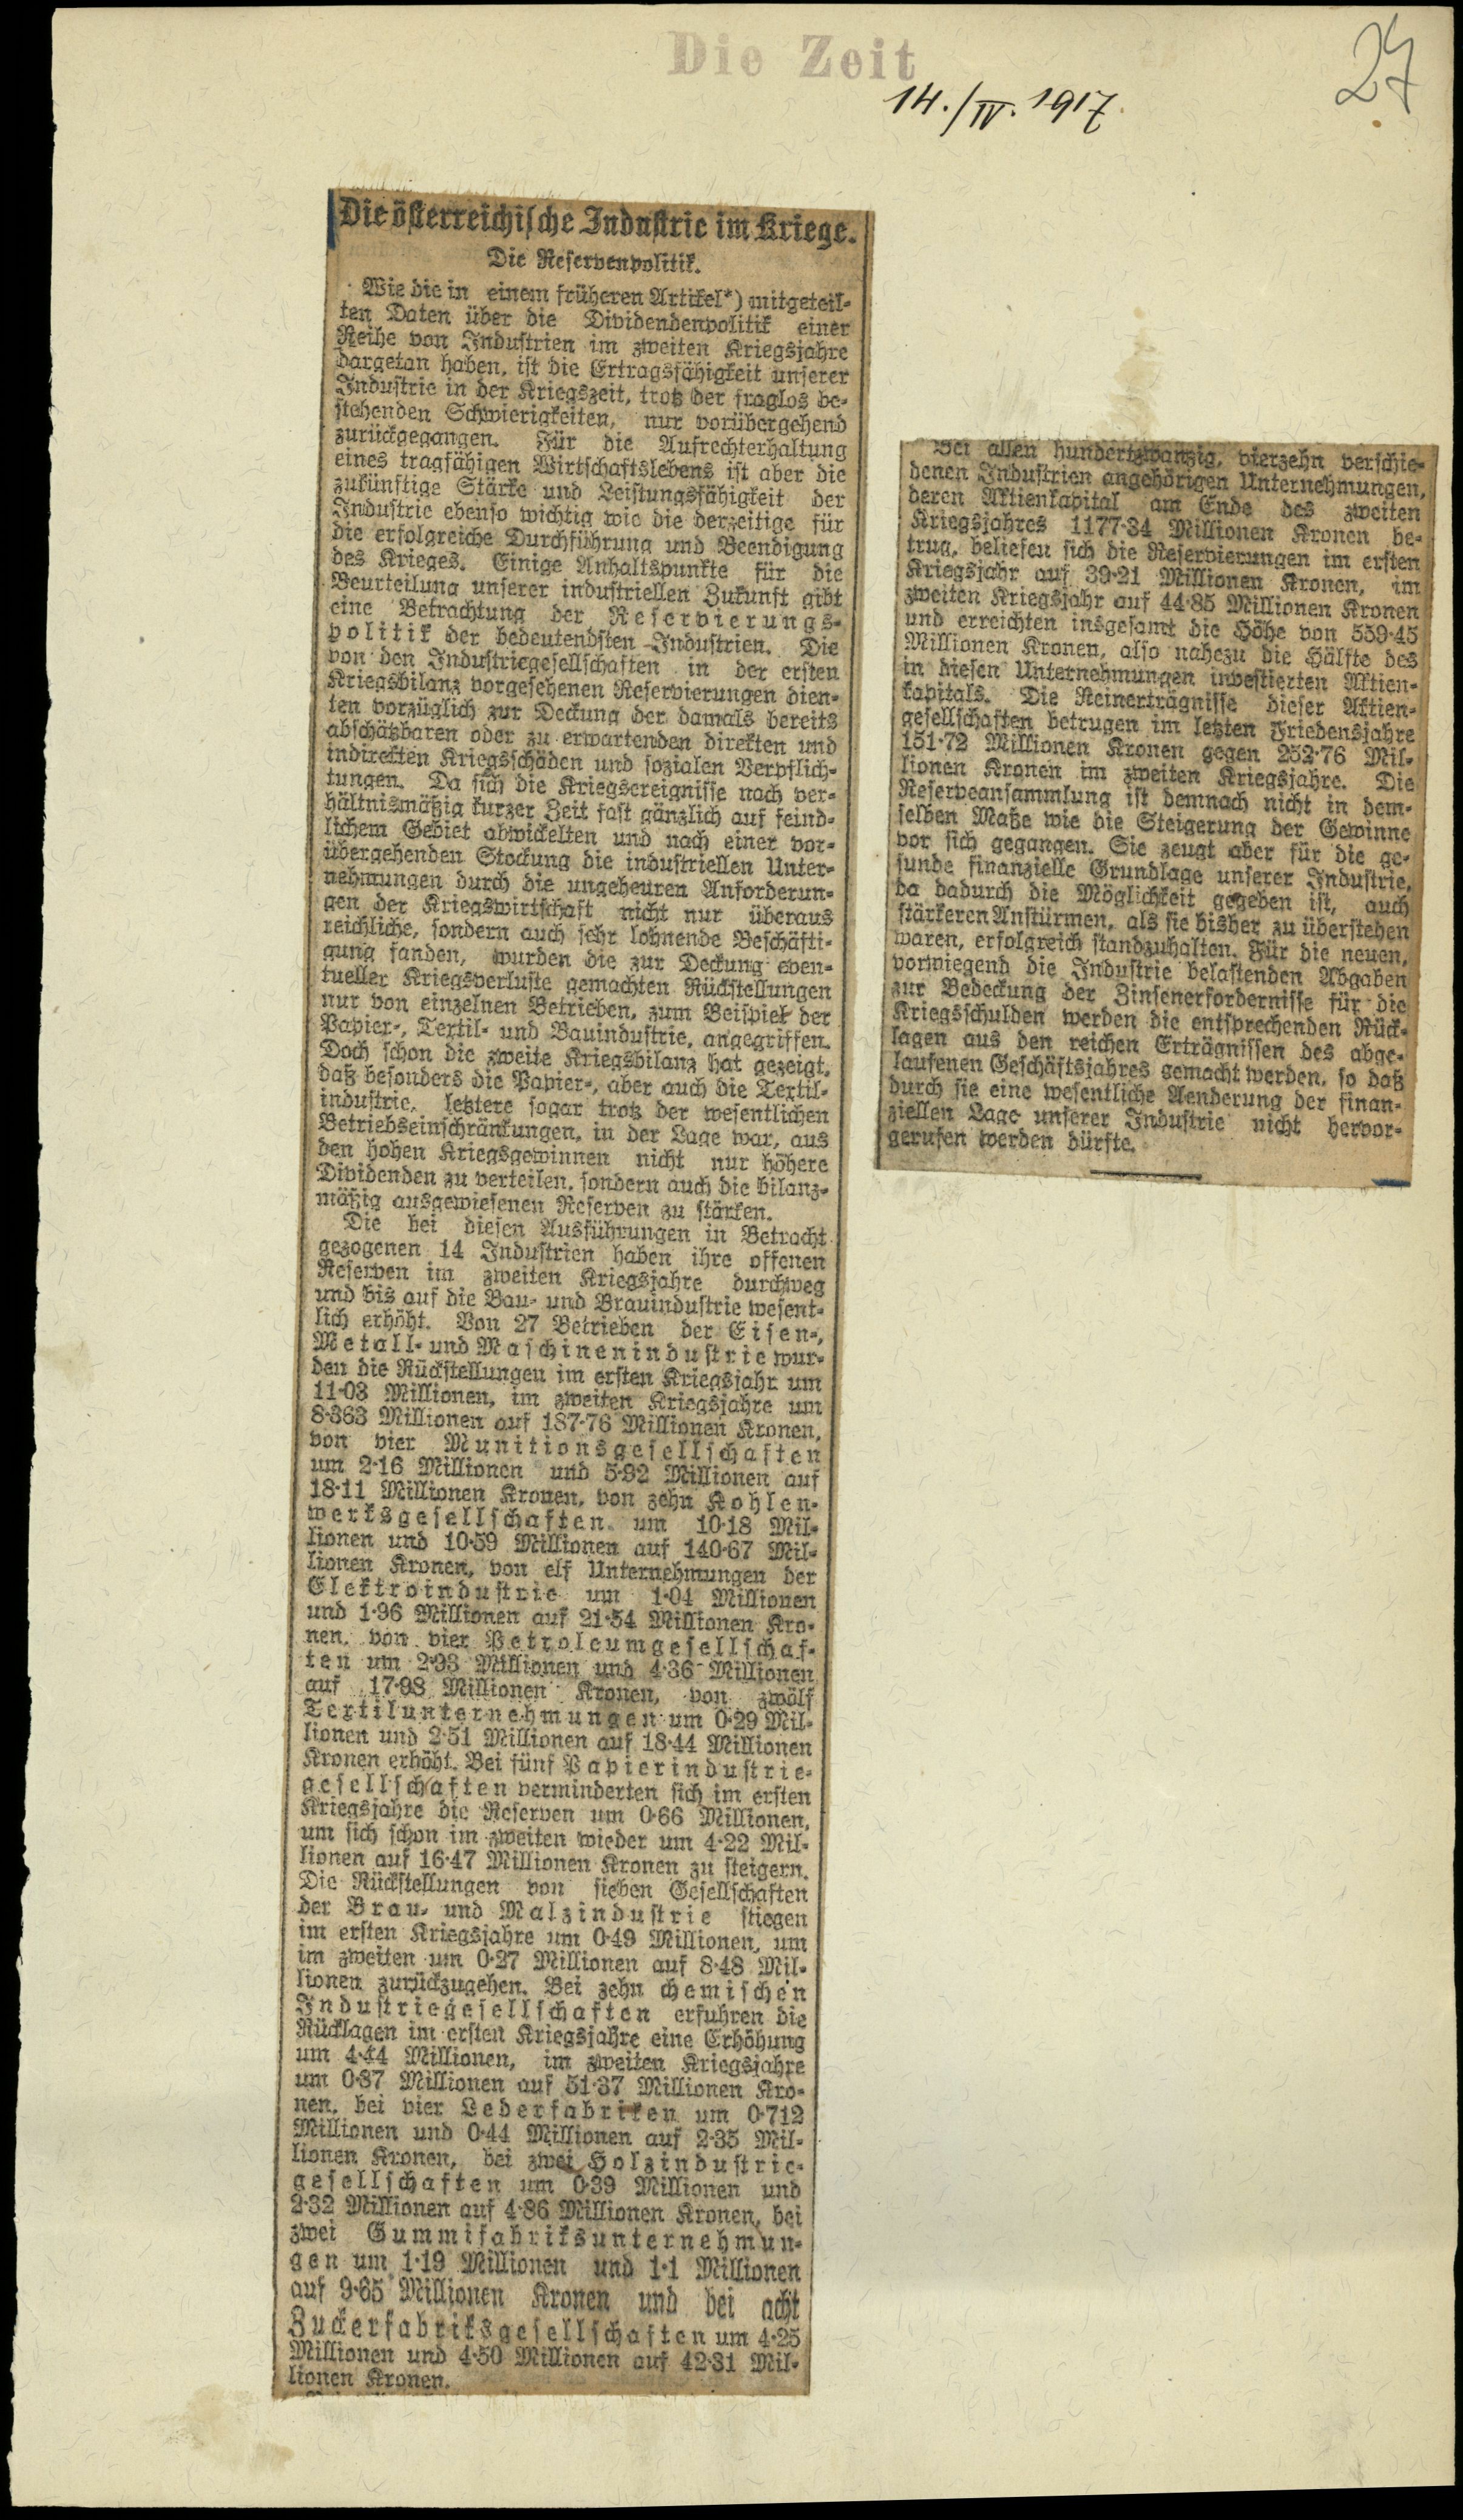 Die Zeit
14./IV. 1917.
27
Die österreichische Industrie im Kriege.
Die Reservenpolitik.
Wie die in einem früheren Artikel*) mitgeteil-
ten Daten über die Dividendenpolitik einer
Reihe von Industrien im zweiten Kriegsjahre
dargetan haben, ist die Ertragsfähigkeit unserer
Industrie in der Kriegszeit, trotz der fraglos be-
stehenden Schwierigkeiten, nur vorübergehend
zurückgegangen. Für die Aufrechterhaltung
eines tragfähigen Wirtschaftslebens ist aber die
zukünftige Stärke und Leistungsfähigkeit der
Industrie ebenso wichtig wie die derzeitige für
die erfolgreiche Durchführung und Beendigung
des Krieges. Einige Anhaltspunkte für die
Beurteilung unserer industriellen Zukunft gibt
eine Betrachtung der Reservierungs-
politik der bedeutendsten Industrien. Die
von den Industriegesellschaften in der ersten
Kriegsbilanz vorgesehenen Reservierungen dien-
ten vorzüglich zur Deckung der damals bereits
abschätzbaren oder zu erwartenden direkten und
indirekten Kriegsschäden und sozialen Verpflich-
tungen. Da sich die Kriegsereignisse nach ver-
hältnismäßig kurzer Zeit fast gänzlich auf feind-
lichem Gebiet abwickelten und nach einer vor-
übergehenden Stockung die industriellen Unter-
nehmungen durch die ungeheuren Anforderun-
gen der Kriegswirtschaft nicht nur überaus
reichliche, sondern auch sehr lohnende Beschäfti-
gung fanden, wurden die zur Deckung even-
tueller Kriegsverluste gemachten Rückstellungen
nur von einzelnen Betrieben, zum Beispiel der
Papier-, Textil- und Bauindustrie, angegriffen.
Doch schon die zweite Kriegsbilanz hat gezeigt,
daß besonders die Papier-, aber auch die Textil-
industrie, letztere sogar trotz der wesentlichen
Betriebseinschränkungen, in der Lage war, aus
den hohen Kriegsgewinnen nicht nur höhere
Dividenden zu verteilen, sondern auch die bilanz-
mäßig ausgewiesenen Reserven zu stärken.
Die bei diesen Ausführungen in Betracht
gezogenen 14 Industrien haben ihre offenen
Reserven im zweiten Kriegsjahre durchweg
und bis auf die Bau- und Brauindustrie wesent-
lich erhöht. Von 27 Betrieben der Eisen-,
Metall- und Maschinenindustrie wur-
den die Rückstellungen im ersten Kriegsjahr um
11·03 Millionen, im zweiten Kriegsjahre um
8·363 Millionen auf 187·76 Millionen Kronen,
von vier Munitionsgesellschaften
um 2·16 Millionen und 5·92 Millionen auf
18·11 Millionen Kronen, von zehn Kohlen-
werksgesellschaften um 10·18 Mil-
lionen und 10·59 Millionen auf 140·67 Mil-
lionen Kronen, von elf Unternehmungen der
Elektroindustrie um 1·04 Millionen
und 1·96 Millionen auf 21·54 Millionen Kro-
nen, von vier Petroleumgesellschaf-
ten um 2·93 Millionen und 4·36 Millionen
auf 17·98 Millionen Kronen, von zwölf
Textilunternehmungen um 0·29 Mil-
lionen und 2·51 Millionen auf 18·44 Millionen
Kronen erhöht. Bei fünf Papierindustrie-
gesellschaften verminderten sich im ersten
Kriegsjahre die Reserven um 0·66 Millionen,
um sich schon im zweiten wieder um 4·22 Mil-
lionen auf 16·47 Millionen Kronen zu steigern.
Die Rückstellungen von sieben Gesellschaften
der Brau- und Malzindustrie stiegen
im ersten Kriegsjahre um 0·49 Millionen, um
im zweiten um 0·27 Millionen auf 8·48 Mil-
lionen zurückzugehen. Bei zehn chemischen
Industriegesellschaften erfuhren die
Rücklagen im ersten Kriegsjahre eine Erhöhung
um 4·44 Millionen, im zweiten Kriegsjahre
um 0·87 Millionen auf 51·37 Millionen Kro-
nen, bei vier Lederfabriken um 0·712
Millionen und 0·44 Millionen auf 2·35 Mil-
lionen Kronen, bei zwei Holzindustrie-
gesellschaften um 0·39 Millionen und
2·32 Millionen auf 4·86 Millionen Kronen, bei
zwei Gummifabriksunternehmun-
gen um 1·19 Millionen und 1·1 Millionen
auf 9·65 Millionen Kronen und bei acht
Zuckerfabriksgesellschaften um 4·25
Millionen und 4·50 Millionen auf 42·31 Mil-
lionen Kronen.
Bei allen hundertzwanzig, vierzehn verschie-
denen Industrien angehörigen Unternehmungen,
deren Aktienkapital am Ende des zweiten
Kriegsjahres 1177·34 Millionen Kronen be-
trug, beliefen sich die Reservierungen im ersten
Kriegsjahr auf 39·21 Millionen Kronen, im
zweiten Kriegsjahr auf 44·85 Millionen Kronen
und erreichten insgesamt die Höhe von 559·45
Millionen Kronen, also nahezu die Hälfte des
in diesen Unternehmungen investierten Aktien-
kapitals. Die Reinerträgnisse dieser Aktien-
gesellschaften betrugen im letzten Friedensjahre
151·72 Millionen Kronen gegen 252·76 Mil-
lionen Kronen im zweiten Kriegsjahre. Die
Reserveansammlung ist demnach nicht in dem-
selben Maße wie die Steigerung der Gewinne
vor sich gegangen. Sie zeugt aber für die ge-
sunde finanzielle Grundlage unserer Industrie,
da dadurch die Möglichkeit gegeben ist, auch
stärkeren Anstürmen, als sie bisher zu überstehen
waren, erfolgreich standzuhalten. Für die neuen,
vorwiegend die Industrie belastenden Abgaben
zur Bedeckung der Zinsenerfordernisse für die
Kriegsschulden werden die entsprechenden Rück-
lagen aus den reichen Erträgnissen des abge-
laufenen Geschäftsjahres gemacht werden, so daß
durch sie eine wesentliche Aenderung der finan-
ziellen Lage unserer Industrie nicht hervor-
gerufen werden dürfte.